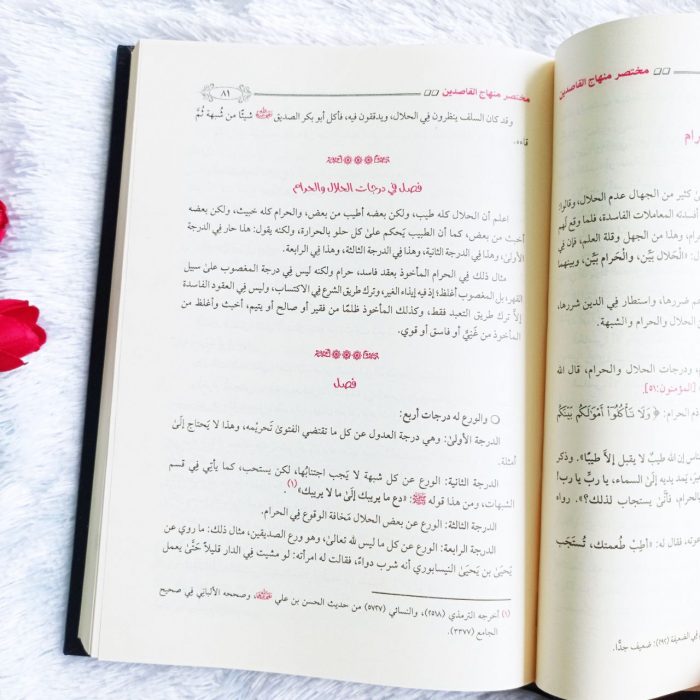 مختصر منهاج القاصدين
٨١
وقد كان السلف ينظرون في الحلال، ويدققون فيه، فأكل أبو بكر الصديق شيئًا من شُبهة ثُمَّ
قاءه.
فصل في درجات الحلال والحرام
اعلم أن الحلال كله طيب، ولكن بعضه أطيب من بعض، والحرام كله خبيث، ولكن بعضه
أخبث من بعض، كما أن الطبيب يَحكم علىٰ كل حلو بالحرارة، ولكنه يقول: هذا حار في الدرجة
الأولىٰ، وهذا فِي الدرجة الثانية، وهذا فِي الدرجة الثالثة، وهذا فِي الرابعة.
مثال ذلك فِي الحرام المأخوذ بعقد فاسد، حرام ولكنه ليس فِي درجة المغصوب علىٰ سبيل
القهر؛ بل المغصوب أغلظ؛ إذ فيه إيذاء الغير، وترك طريق الشرع فِي الاكتساب، وليس فِي العقود الفاسدة
إلاَّ ترك طريق التعبد فقط، وكذلك المأخوذ ظلمًا من فقير أو صالح أو يتيم، أخبث وأغلظ من
المأخوذ من غَنِيٍّ أو فاسق أو قوي.
فصل
والورع له درجات أربع:
الدرجة الأولىٰ: وهي درجة العدول عن كل ما تقتضي الفتوىٰ تَحريْمه، وهذا لا يَحتاج إلَىٰ
أمثلة.
الدرجة الثانية: الورع عن كل شبهة لا يَجب اجتنابُها، لكن يستحب، كما يأتِي فِي قسم
الشبهات، ومن هذا قوله ﷺ: «دع ما يريبك إلَىٰ ما لا يريبك»(١).
الدرجة الثالثة: الورع عن بعض الحلال مَخافة الوقوع فِي الحرام.
الدرجة الرابعة: الورع عن كل ما ليس لله تعالَىٰ، وهو ورع الصديقين، مثال ذلك: ما روي عن
يَحيَىٰ بن يَحيَىٰ النيسابوري أنه شرب دواءً، فقالت له امرأته: لو مشيت فِي الدار قليلاً حَتَّىٰ يعمل
(١) أخرجه الترمذي (٢٥١٨)، والنسائي (٥٧٢٧) من حديث الحسن بن علي، وصححه الألبانِي فِي صحيح
الجامع (٣٣٧٧).
مختصر منهاج القاصدين
كثير من الجهال عدم الحلال، وقالوا:
أفسدته المعاملات الفاسدة، فلما وقع لَهم
وهذا من الجهل وقلة العلم، فإن فِي
«الْحَلال بَيِّن، والْحَرام بَيِّن، وبينهما
ضررها، واستطار فِي الدين شررها،
الحلال والحرام والشبهة.
ودرجات الحلال والحرام، قال الله
[المؤمنون:٥١].
ذم الحرام: ﴿ وَلَا تَأْكُلُوٓا۟ أَمْوَٰلَكُم بَيْنَكُم
إن الله طيبٌ لا يقبل إلاَّ طيبًا». وذكر
يَمد يديه إلَىٰ السماء، يا ربِّ يا رب!
فأنَّىٰ يستجاب لذلك؟». رواه
فقال له: «أطِبْ طُعمتك، تُستَجَب
فِي الضعيفة: ضعيف جدًّا.